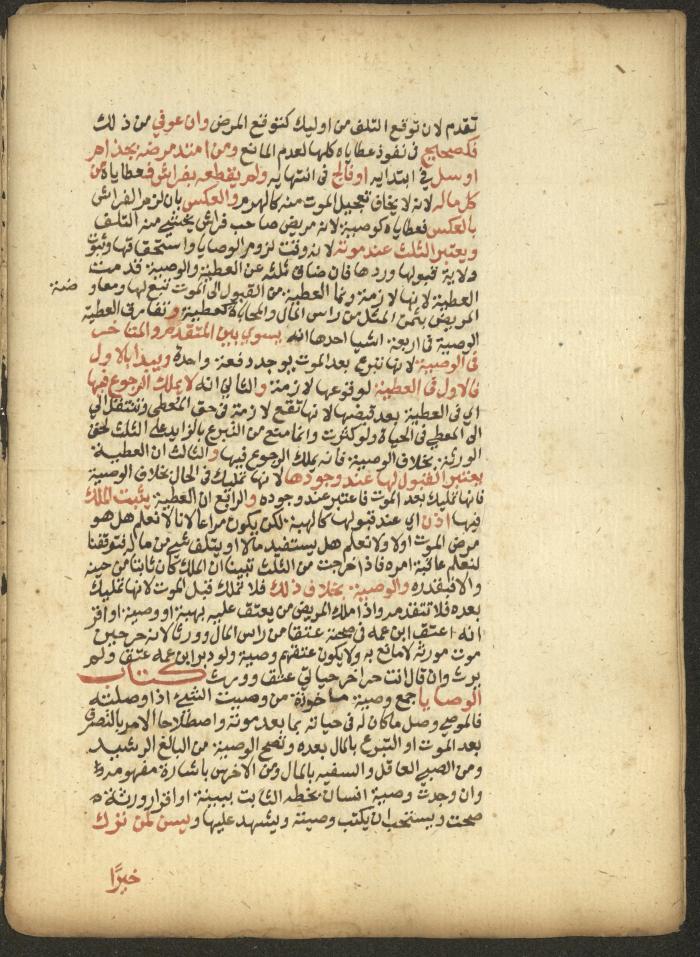 تقدم لان توقع التلف من اوليك كتوقع المرض وان عوفي من ذلك
فكصحيح في نفوذ عطاياه كلها لعدم المانع ومن امتد مرضه بجذام
او سل في ابتدايه او فالج في انتهايه ولم يقطعه بفراش فعطاياه من
كل ماله لانه لا يخاف تعجيل الموت منه كالهرم والعكس بان لزم الفراش
بالعكس فعطاياه كوصية لانه مريض صاحب فراش يخشي منه التلف
ويعتبر الثلث عند موته لانه وقت لزوم الوصايا واستحقاقها وثبوت
ولاية قبولها وردها فان ضاق ثلثه عن العطية والوصية قدمت
العطية لانها لازمة ونما العطية من القبول الي الموت تبع لها ومعاو
ضة
المريض بثمن المثل من راس المال والمحاباة كعطية وتفارق العطية
الوصية في اربعة اشيا احدها انه يسوي بين المتقدم والمتاخر
في الوصية لانها تبرع بعد الموت يوجد دفعة واحدة ويبدا بالاول
فالاول في العطية لوقوعها لازمة والثاني انه لا يملك الرجوع فيها
اي في العطية بعد قبضها لانها تقع لازمة في حق المعطي وتنتقل الي
الي المعطي في الحياة ولو كثرت وانما منع من التبرع بالزايد علي الثلث لحق
الورثة بخلاف الوصية فانه يملك الرجوع فيها والثالث ان العطية
يعتبر القبول لها عند وجودها لانها تمليك في الحال بخلاف الوصية
فانها تمليك بعد الموت فاعتبر عند وجوده والرابع ان العطية يثبت الملك
فيها اذن اي عند قبولها كالهبة لكن يكون مراعا لانا لا نعلم هل هو
مرض الموت او لا ولا نعلم هل يستفيد مالا او يتلف شي من ماله فتوقفنا
لنعلم عاقبة امره فاذا خرجت من الثلث تبينا ان الملك كان ثابتا من حينه
والا فبقدره والوصية بخلاف ذلك فلا تملك قبل الموت لانها تمليك
بعده فلا تتقدمه واذا ملك المريض من يعتق عليه بهبة او وصية او اقر
انه اعتق ابن عمه في صحته عتقا من راس المال وورثا لانه حر حين
موت مورثه لا مانع به ولا يكون عتقهم وصية ولو دبر ابن عمه عتق ولم
يرث وان قال انت حر اخر حياتي عتق وورث كتاب
الوصايا جمع وصية ماخوذة من وصيت الشي اذا وصلته
فالموصي وصل ما كان له في حياته بما بعد موته واصطلاحا الامر بالتصرف
بعد الموت او التبرع بالمال بعده وتصح الوصية من البالغ الرشيد
ومن الصبي العاقل والسفيه بالمال ومن الاخرس باشارة مفهومة
وان وجدت وصية انسان بخطه الثابت ببينة او اقرار ورثة
صحت ويستحب ان يكتب وصيته ويشهد عليها ويسن لمن ترك
خيرًا